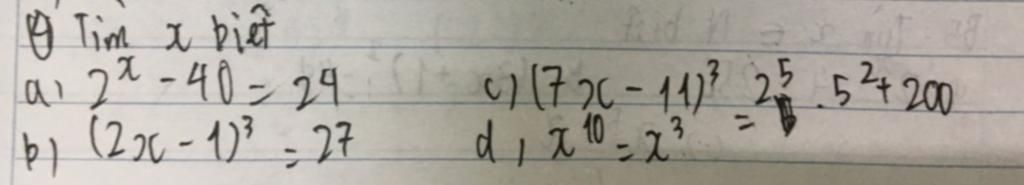 ④ Tìm x biết
a, 2^x - 40 = 24 c, (7x - 11)^3 = 2^5 . 5^2 + 200
b, (2x - 1)^3 = 27 d, x^10 = x^3